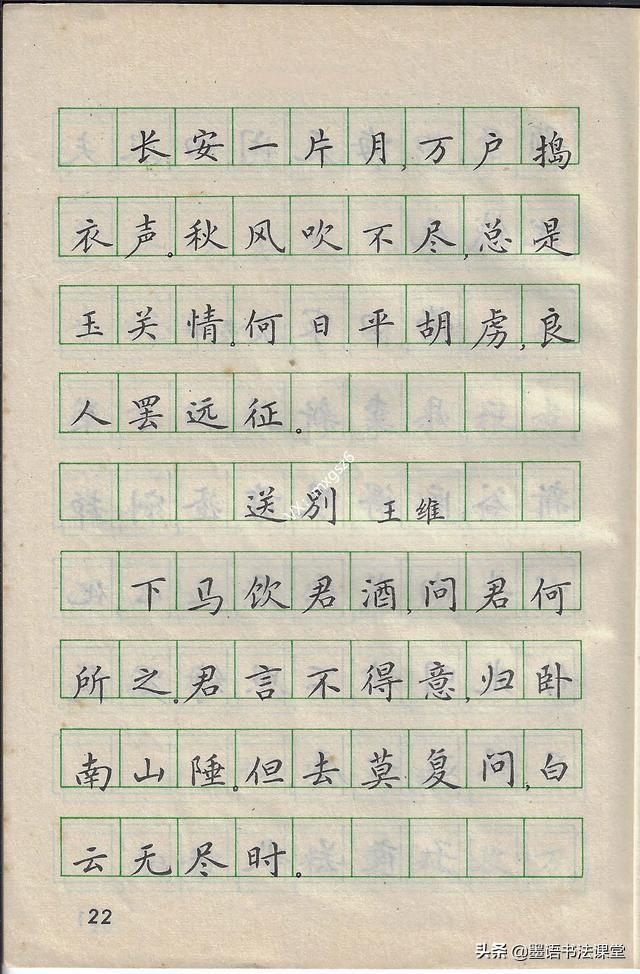 长安一片月,万户捣
衣声。秋风吹不尽,总是
玉关情。何日平胡虏,良
人罢远征。
送别 王维
下马饮君酒,问君何
所之。君言不得意,归卧
南山陲。但去莫复问,白
云无尽时。
22
头条 @墨语书法课堂